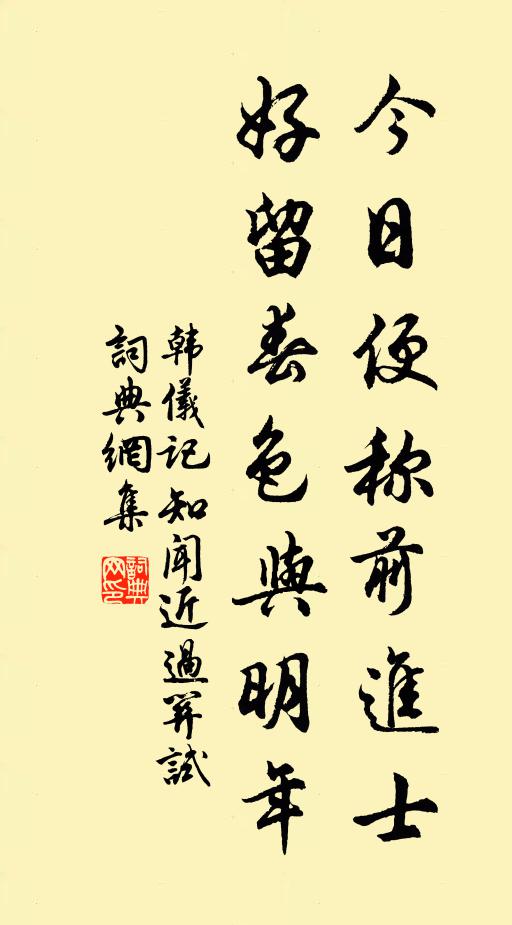 今日便称前進士
好留春色與明年
韩儀記知闻近過關試
詞典網集
詞典網印